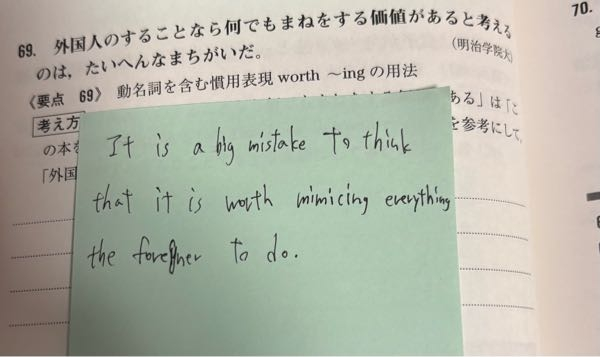 69. 外国人のすることなら何でもまねをする価値があると考える
のは，たいへんなまちがいだ。
(明治学院大)
《要点 69》 動名詞を含む慣用表現 worth ～ing の用法
考え方
ある」は「こ
の本を
を参考にして，
「外国
It is a big mistake to think
that it is worth mimicing everything
the foregner to do.
70.